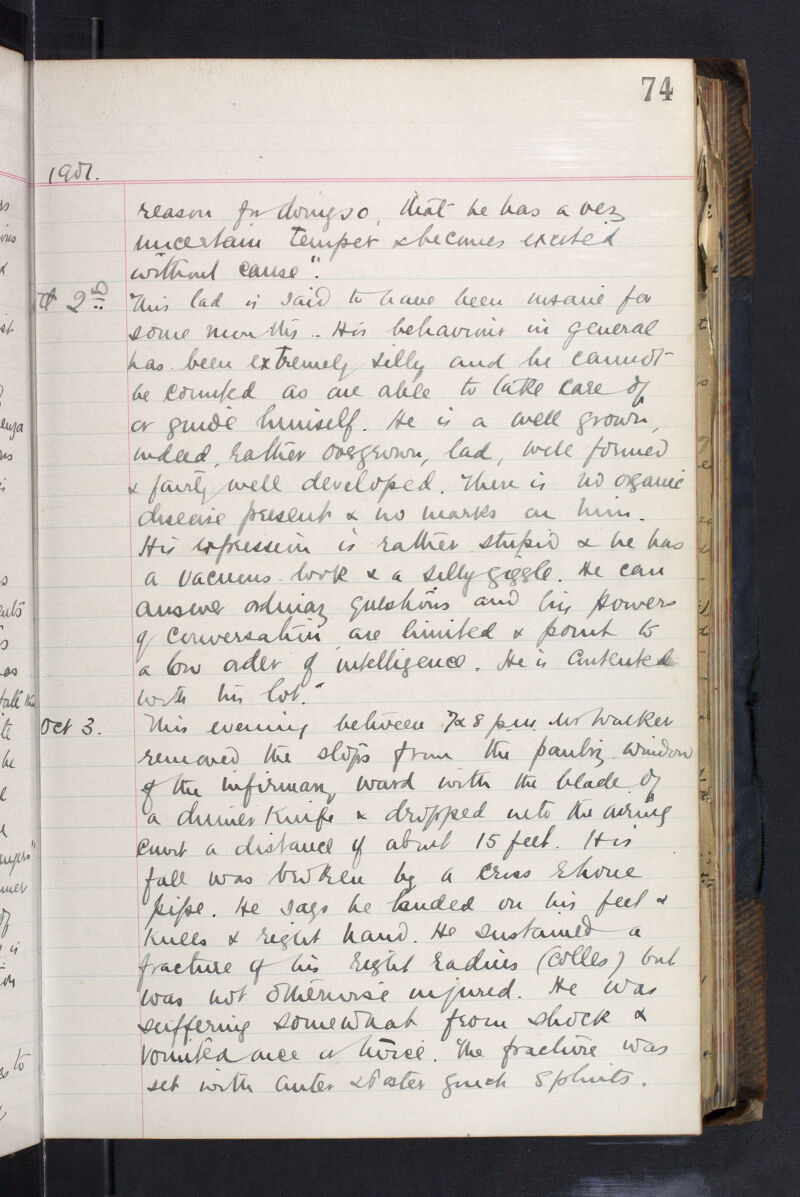 74
1901.
reason for doing so, that he has a very
uncertain temper & becomes excited
without cause".
Oct 2nd This lad is said to have been insane for
some months.. His behaviour in general
has been extremely silly and he cannot
be counted as one able to take care of
or guide himself. He is a well grown,
indeed, rather overgrown, lad, well formed
& fairly well developed. There is no organic
disease present & no marks on him.
His expression is rather stupid & he has
a vacuous look & a silly giggle. He can
answer ordinary questions and his powers
of conversation are limited & point to
a low order of intelligence. He is contented
with his lot."
Oct 3. This evening between 7 & 8 p.m. Mr Walker
removed the stops from the pantry window
of the infirmary ward with the blade of
a dinner knife & dropped into the airing
court a distance of about 15 feet. His
fall was broken by a cross rhone
pipe. He says he landed on his feet &
knees & right hand. He sustained a
fracture of his right radius (Colles) but
was not otherwise injured. He was
suffering somewhat from shock &
vomited once or twice. The fracture was
set with splints.